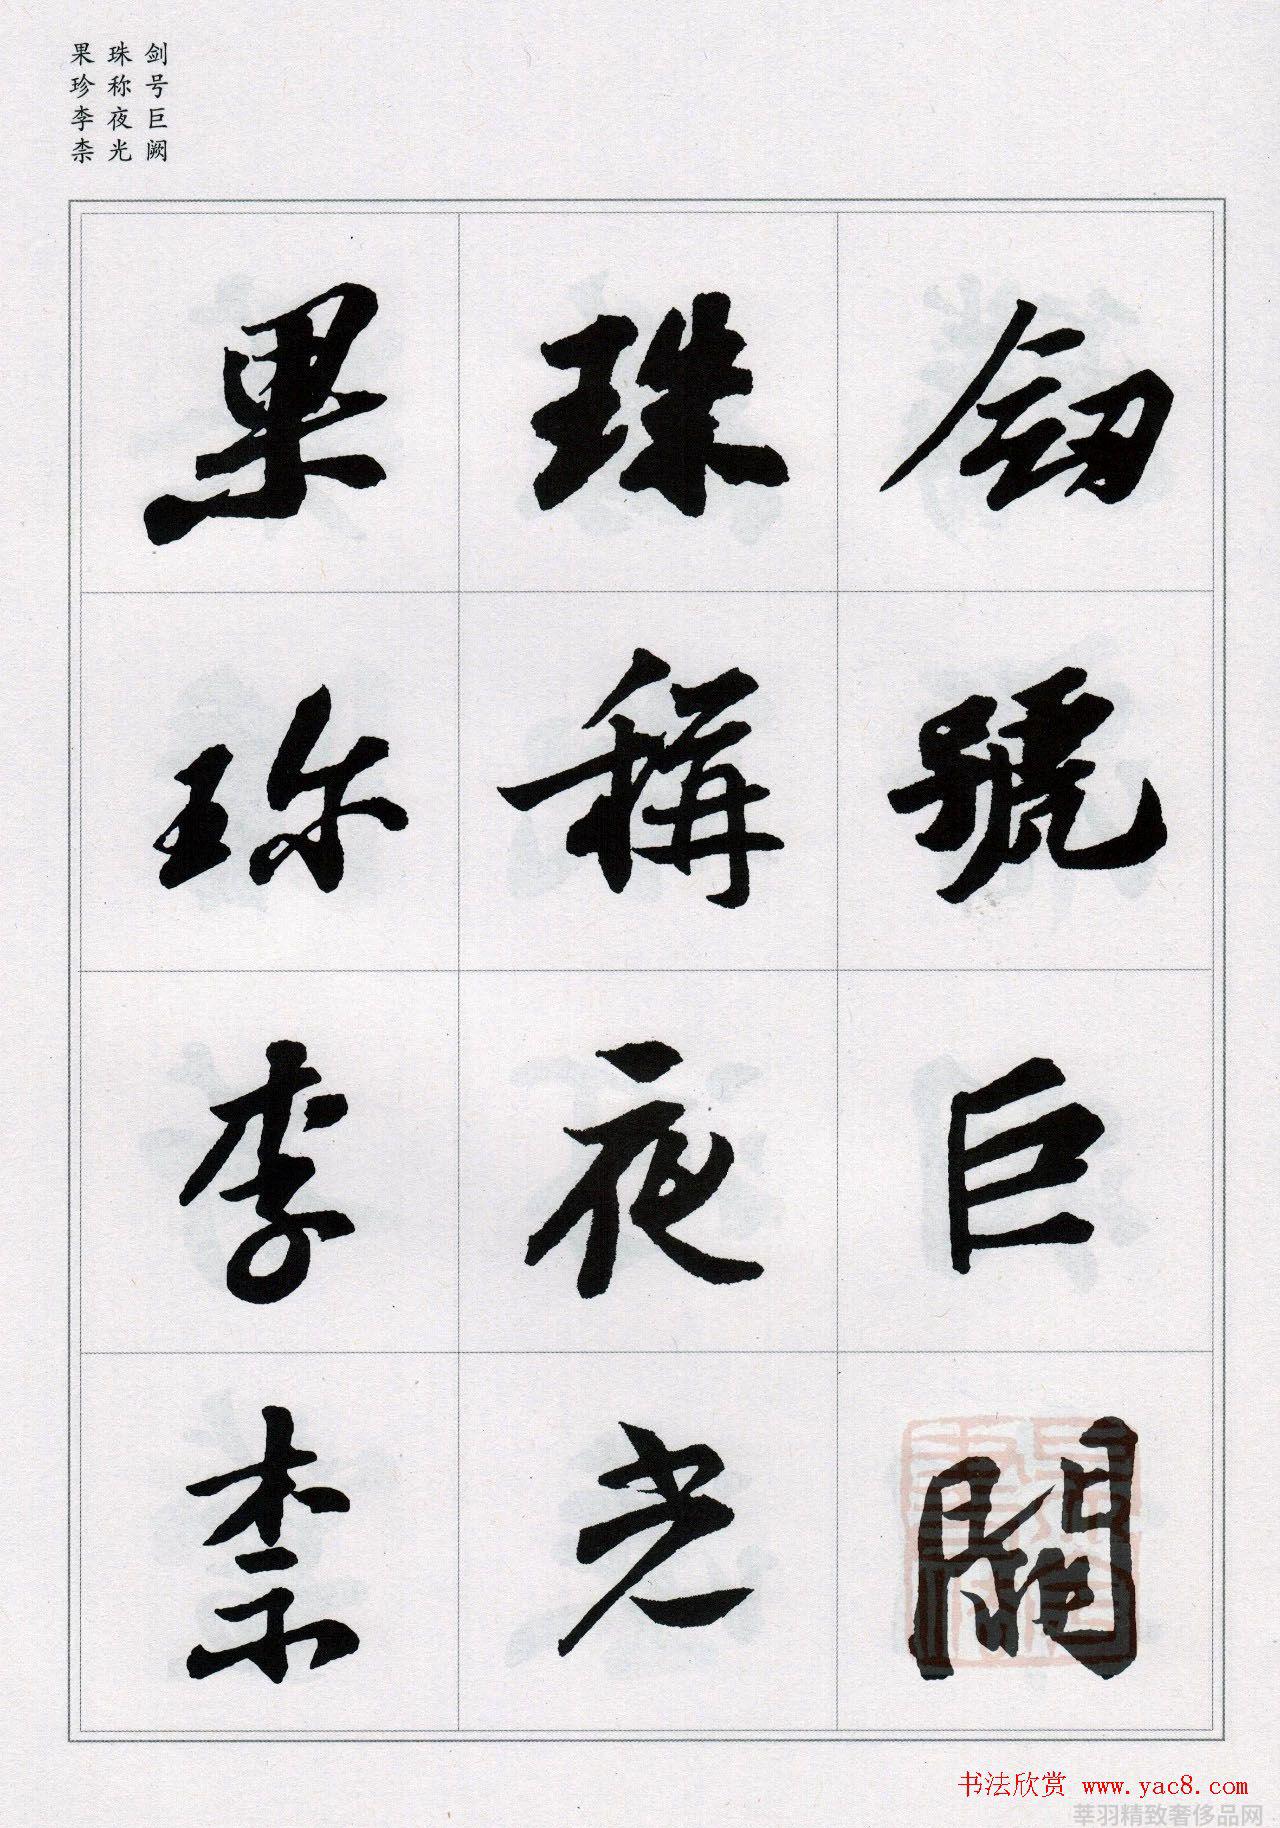 剑号巨阙
珠称夜光
果珍李柰
劍號巨闕
珠稱夜光
果珎李柰
书法欣赏 www.yac8.com
莘羽精致奢侈品网